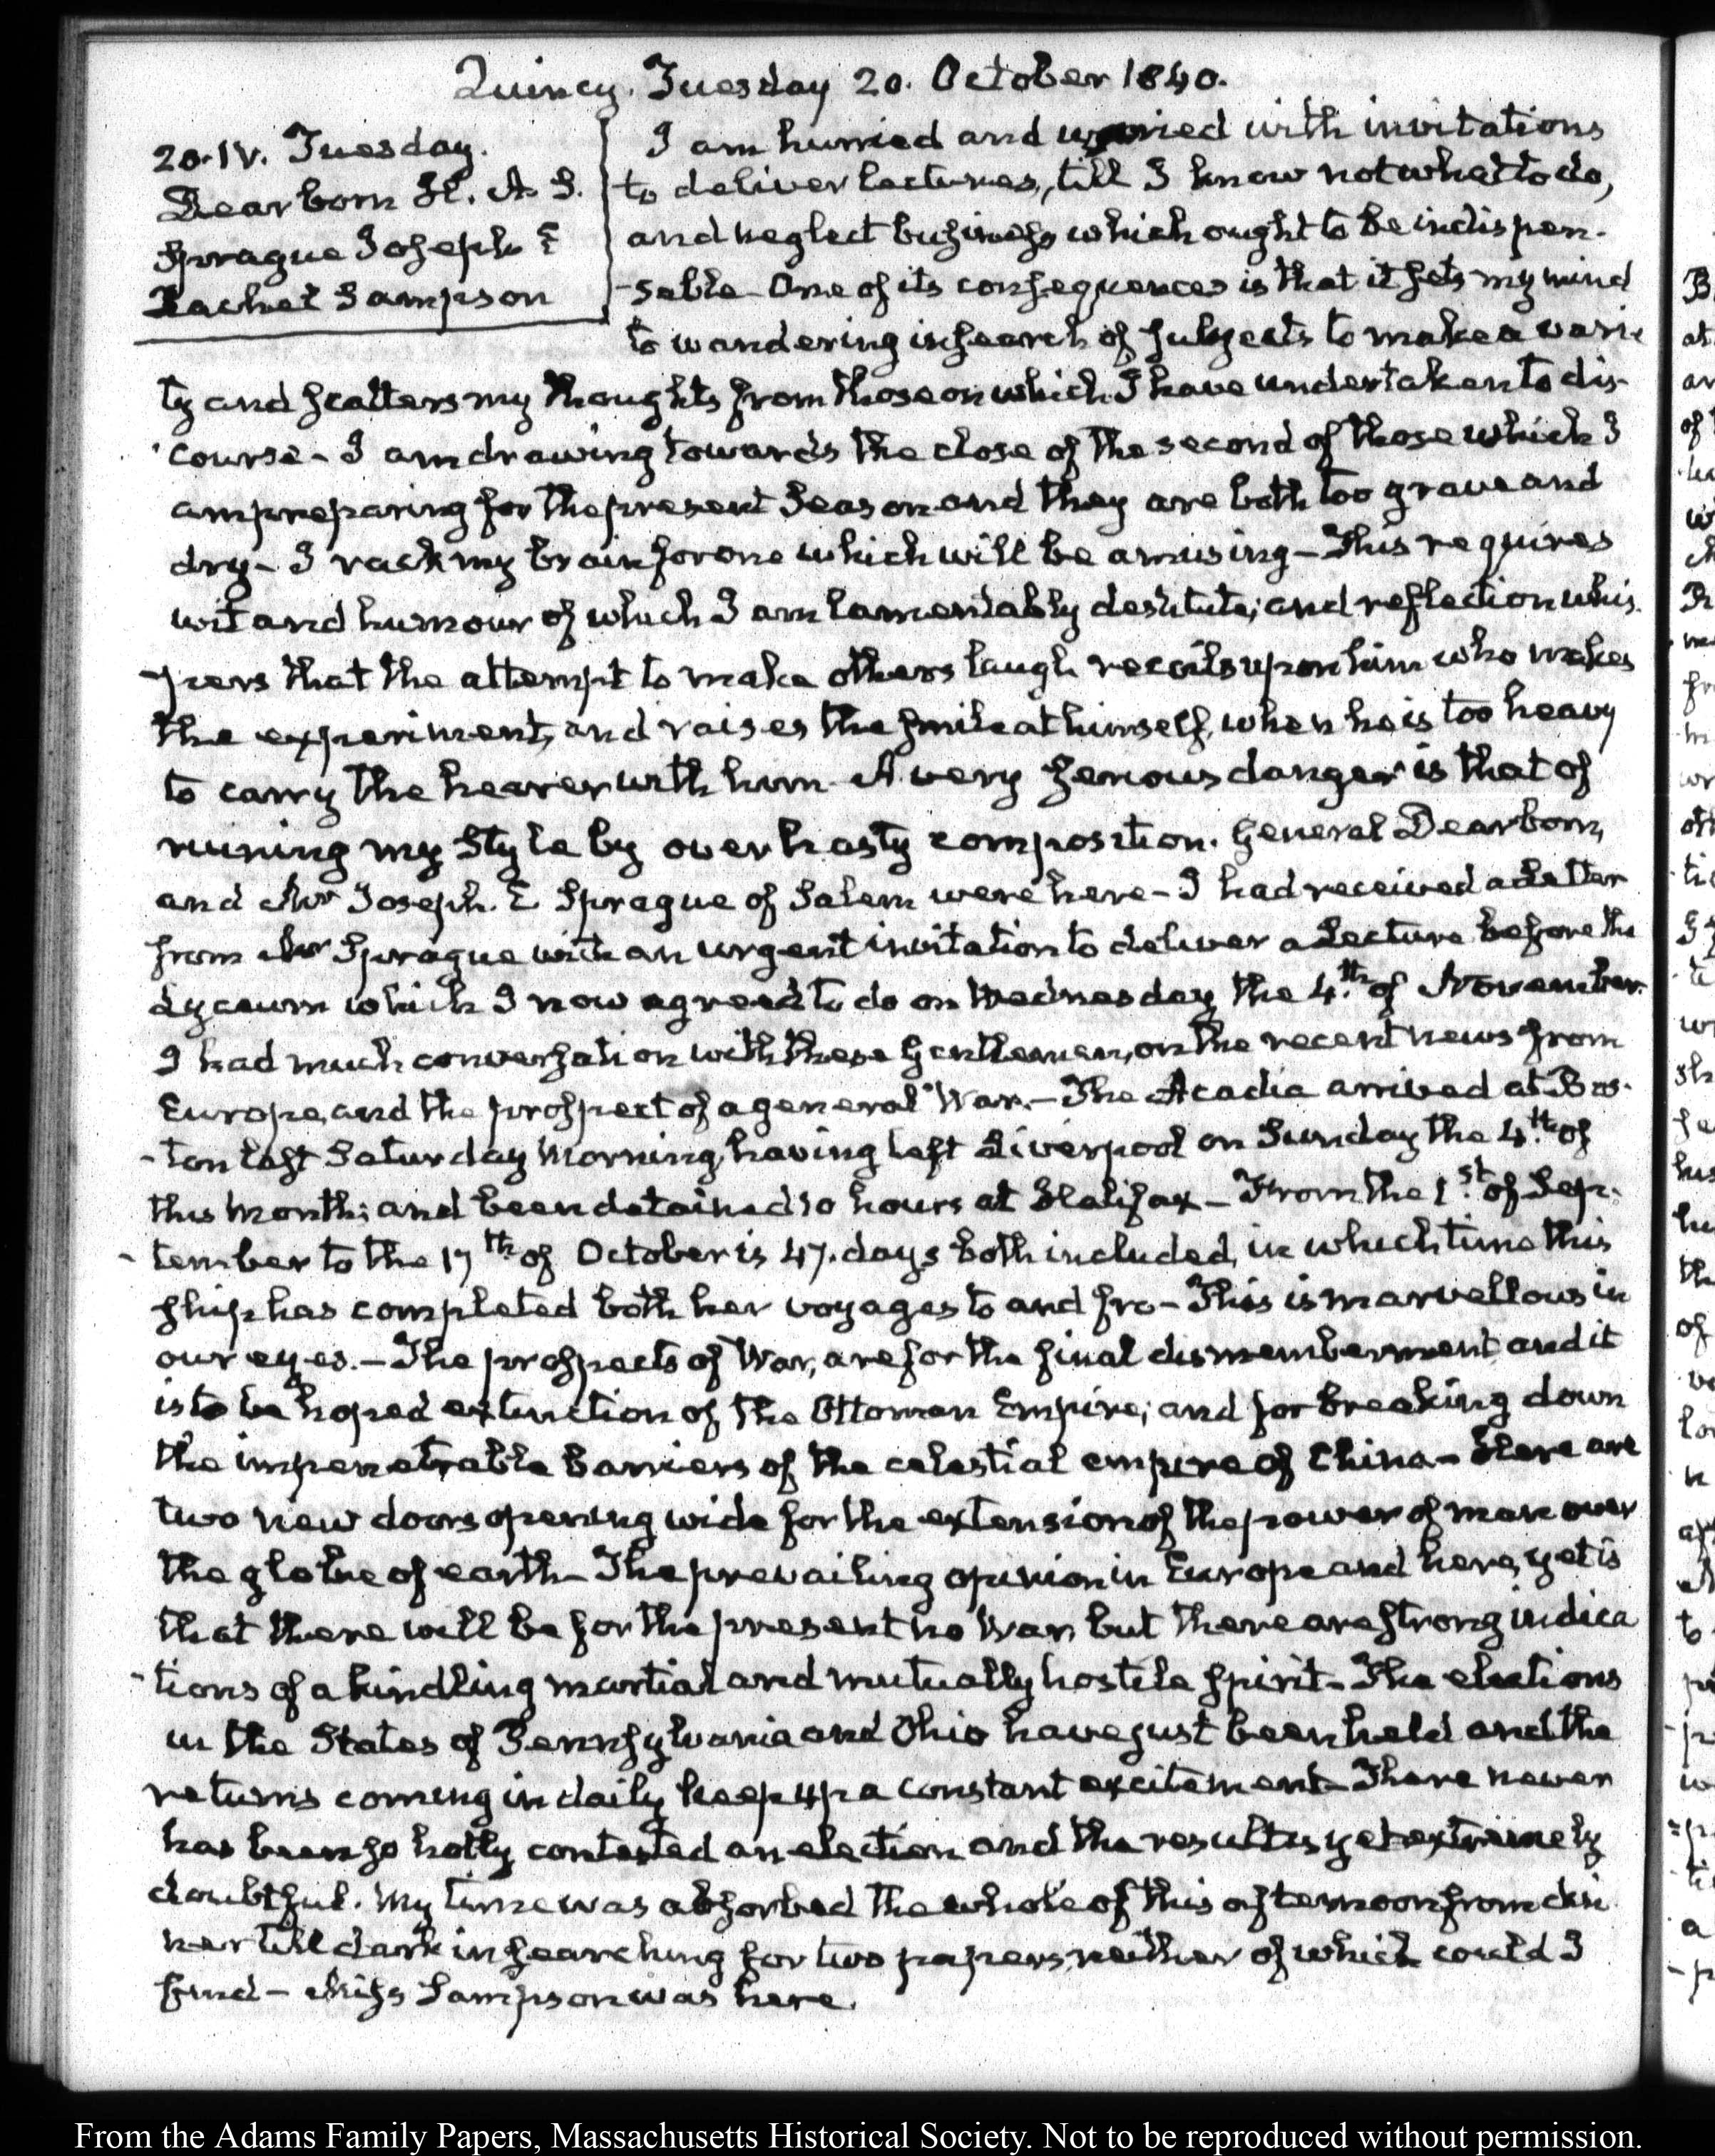 Quincy. Tuesday 20. October 1840.
20. IV. Tuesday.
Dearborn H. A. S.
Sprague Joseph E
Rachel Sampson
I am hurried and worried with invitations
to deliver lectures, till I know not what to do,
and neglect business which ought to be indispen-
-sable. One of its consequences is that it sets my mind
to wandering in search of subjects to make a varie
ty and scatters my thoughts from those on which I have undertaken to dis-
course- I am drawing towards the close of the second of those which I
am preparing for the present Season and they are both too grave and
dry- I rack my brain for one which will be amusing- This requires
wit and humour of which I am lamentably destitute; and reflection whis
-pers that the attempt to make others laugh recoils upon him who makes
the experiment, and raises the smile at himself, when he is too heavy
to carry the hearer with him. A very serious danger is that of
ruining my Style by over hasty composition. General Dearborn,
and Mr Joseph. E Sprague of Salem were here- I had received a Letter
from Mr Sprague with an urgent invitation to deliver a Lecture before the
Lyceum which I now agreed to do on Wednesday the 4.th of November.
I had much conversation with these Gentlemen, on the recent news from
Europe, and the prospect of a general War.- The Acadia arrived at Bos-
-ton last Saturday Morning, having left Liverpool on Sunday the 4.th of
this Month; and been detained 10 hours at Halifax- From the 1.st of Sep-
-tember to the 17th of October is 47. days both included, in which time this
ship has completed both her voyages to and fro- This is marvellous in
our eyes.- The prospects of War, are for the final dismemberment and it
is to be hoped extinction of the Ottoman Empire; and for breaking down
the impenetrable barriers of the celestial empire of China- Here are
two new doors opening wide for the extension of the power of man over
the globe of earth- The prevailing opinion in Europe and here, yet is
that there will be for the present no War, but there are strong indica
-tions of a kindling martial and mutually hostile spirit- The elections
in the States of Pennsylvania and Ohio have just been held and the
returns coming in daily keep up a constant excitement- There never
has been so hotly contested an election and the result is yet extremely
doubtful. My time was absorbed the whole of this afternoon from din
ner till dark in searching for two papers, neither of which could I
find- Miss Sampson was here.
From the Adams Family Papers, Massachusetts Historical Society. Not to be reproduced without permission.